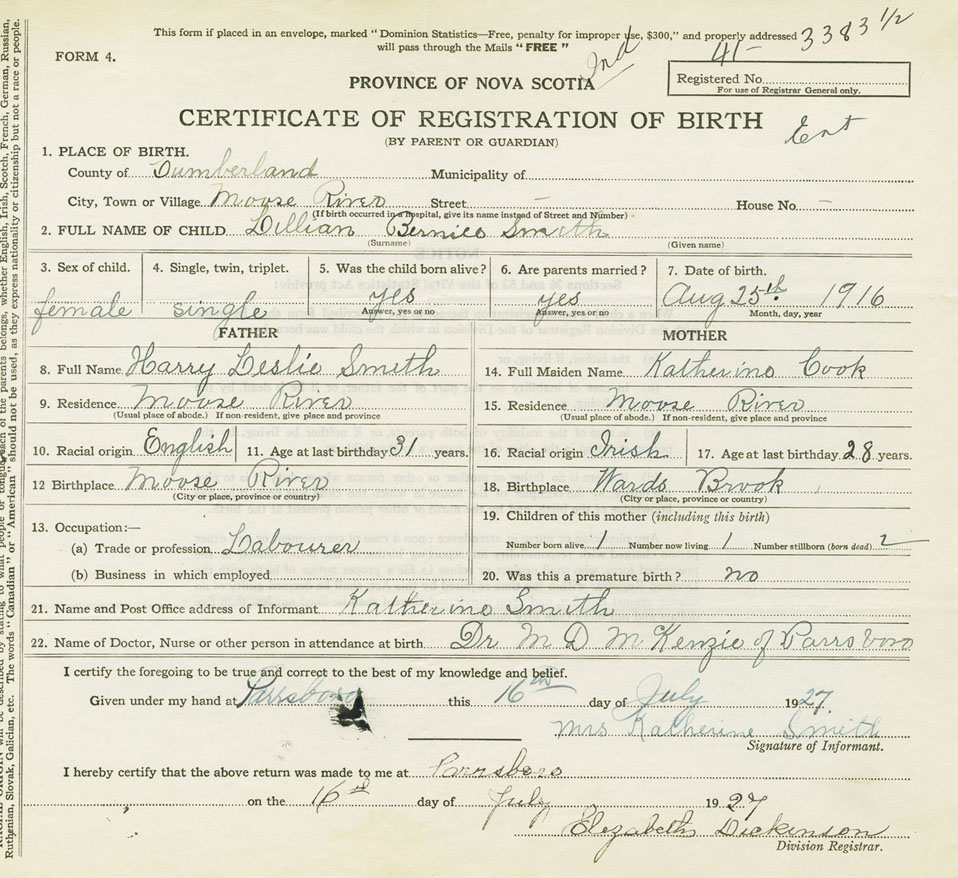 This form if placed in an envelope, marked "Dominion Statistics—Free, penalty for improper use, $300," and properly addressed
will pass through the Mails "FREE"
3383 1/2
41-
2nd
FORM 4.
Registered No.
For use of Registrar General only.
PROVINCE OF NOVA SCOTIA
CERTIFICATE OF REGISTRATION OF BIRTH
Ent
(BY PARENT OR GUARDIAN)
1. PLACE OF BIRTH.
County of Cumberland Municipality of
City, Town or Village Moose River Street — House No. —
(If birth occurred in a hospital, give its name instead of Street and Number)
2. FULL NAME OF CHILD Lillian Bernice Smith
(Surname) (Given name)
3. Sex of child. 4. Single, twin, triplet. 5. Was the child born alive? 6. Are parents married? 7. Date of birth.
female single yes yes Aug 25th 1916
Answer, yes or no Answer, yes or no Month, day, year
FATHER MOTHER
8. Full Name Harry Leslie Smith 14. Full Maiden Name Katherine Cook
9. Residence Moose River 15. Residence Moose River
(Usual place of abode.) If non-resident, give place and province (Usual place of abode.) If non-resident, give place and province
10. Racial origin English 11. Age at last birthday 31 years. 16. Racial origin Irish 17. Age at last birthday 28 years.
12 Birthplace Moose River 18. Birthplace Wards Brook
(City or place, province or country) (City or place, province or country)
13. Occupation:— 19. Children of this mother (including this birth)
(a) Trade or profession Labourer Number born alive 1 Number now living 1 Number stillborn (born dead) 2
(b) Business in which employed 20. Was this a premature birth? no
21. Name and Post Office address of Informant Katherine Smith
22. Name of Doctor, Nurse or other person in attendance at birth Dr M D McKenzie of Parrsboro
I certify the foregoing to be true and correct to the best of my knowledge and belief.
Given under my hand at Parrsboro this 16th day of July 1927.
Mrs Katherine Smith
Signature of Informant.
I hereby certify that the above return was made to me at Parrsboro
on the 16th day of July 1927
Elizabeth Dickinson
Division Registrar.
Ruthenian, Slovak, Galician, etc. The words "Canadian" or "American" should not be used, as they express nationality or citizenship but not a race or people.